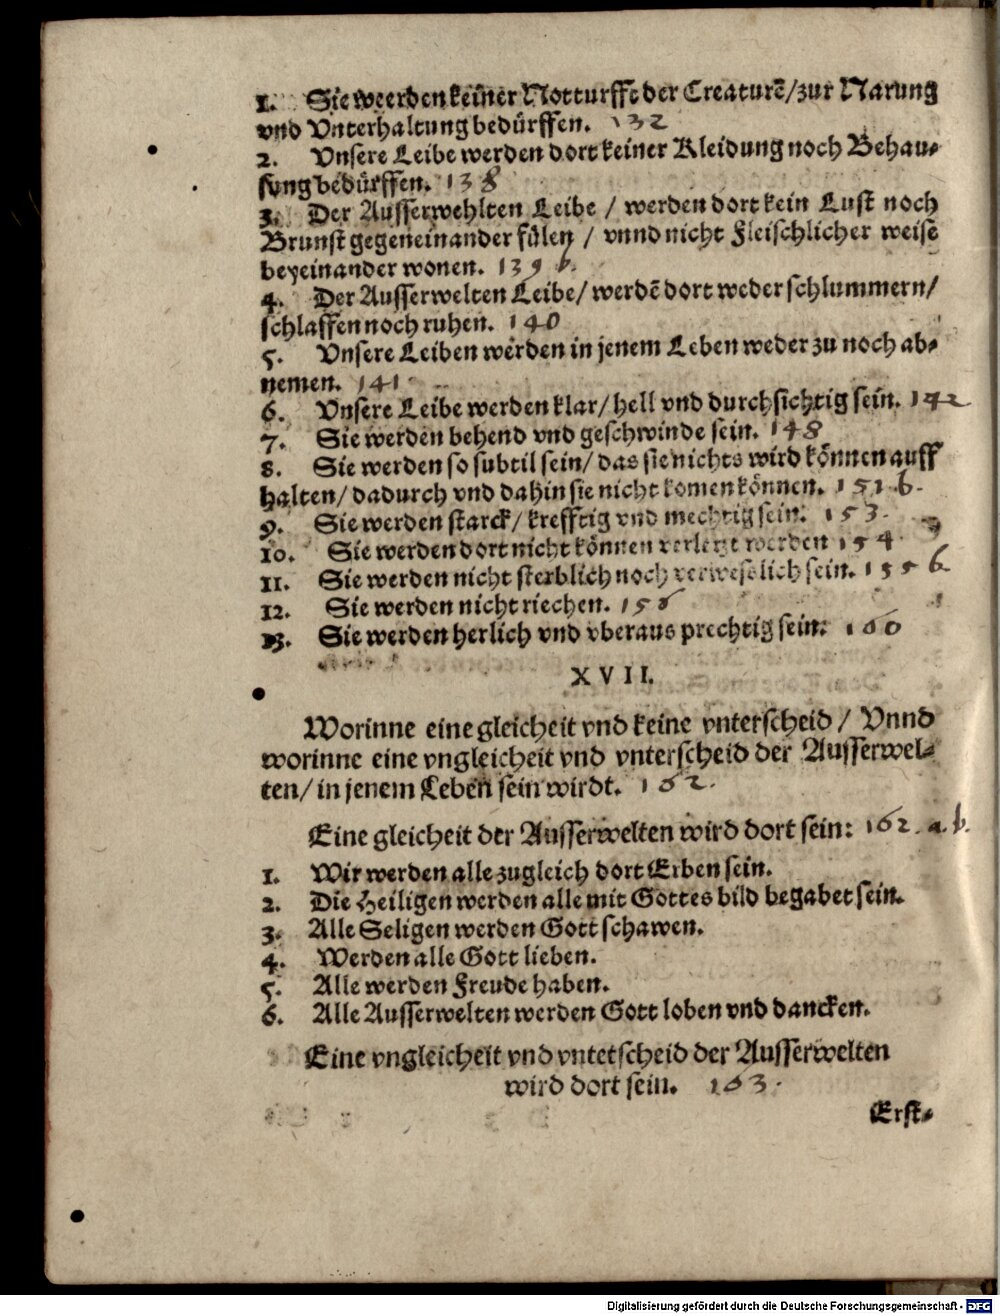 1. Sie weerden keiner Notturfft der Creaturē/zur Narung
vnd Vnterhaltung bedürffen. 132
2. Vnsere Leibe werden dort keiner Kleidung noch Behau-
sung bedürffen. 138
3. Der Ausserwehlten Leibe / werden dort kein Lust noch
Brunst gegeneinander fülen / vnnd nicht Fleischlicher weise
beyeinander wonen. 139 b.
4. Der Ausserwelten Leibe/ werdē dort weder schlummern/
schlaffen noch ruhen. 140
5. Vnsere Leiben werden in jenem Leben weder zu noch ab-
nemen. 141
6. Vnsere Leibe werden klar/ hell vnd durchsichtig sein. 142
7. Sie werden behend vnd geschwinde sein. 148
8. Sie werden so subtil sein/ das sie nichts wird können auff
halten/ dadurch vnd dahin sie nicht komen können. 151 b.
9. Sie werden starck/ krefftig vnd mechtig sein. 153.
10. Sie werden dort nicht können verletzt werden 154
11. Sie werden nicht sterblich noch verweslich sein. 155 b
12. Sie werden nicht riechen. 156
13. Sie werden herlich vnd vberaus prechtig sein. 160
XVII.
Worinne eine gleicheit vnd keine vnterscheid / Vnnd
worinne eine vngleicheit vnd vnterscheid der Ausserwel-
ten/ in jenem Leben sein wirdt. 162.
Eine gleicheit der Ausserwelten wird dort sein: 162. a. b.
1. Wir werden alle zugleich dort Erben sein.
2. Die Heiligen werden alle mit Gottes bild begabet sein.
3. Alle Seligen werden Gott schawen.
4. Werden alle Gott lieben.
5. Alle werden Freude haben.
6. Alle Ausserwelten werden Gott loben vnd dancken.
Eine vngleicheit vnd vntetscheid der Ausserwelten
wird dort sein. 163.
Erst-
Digitalisierung gefördert durch die Deutsche Forschungsgemeinschaft - DFG